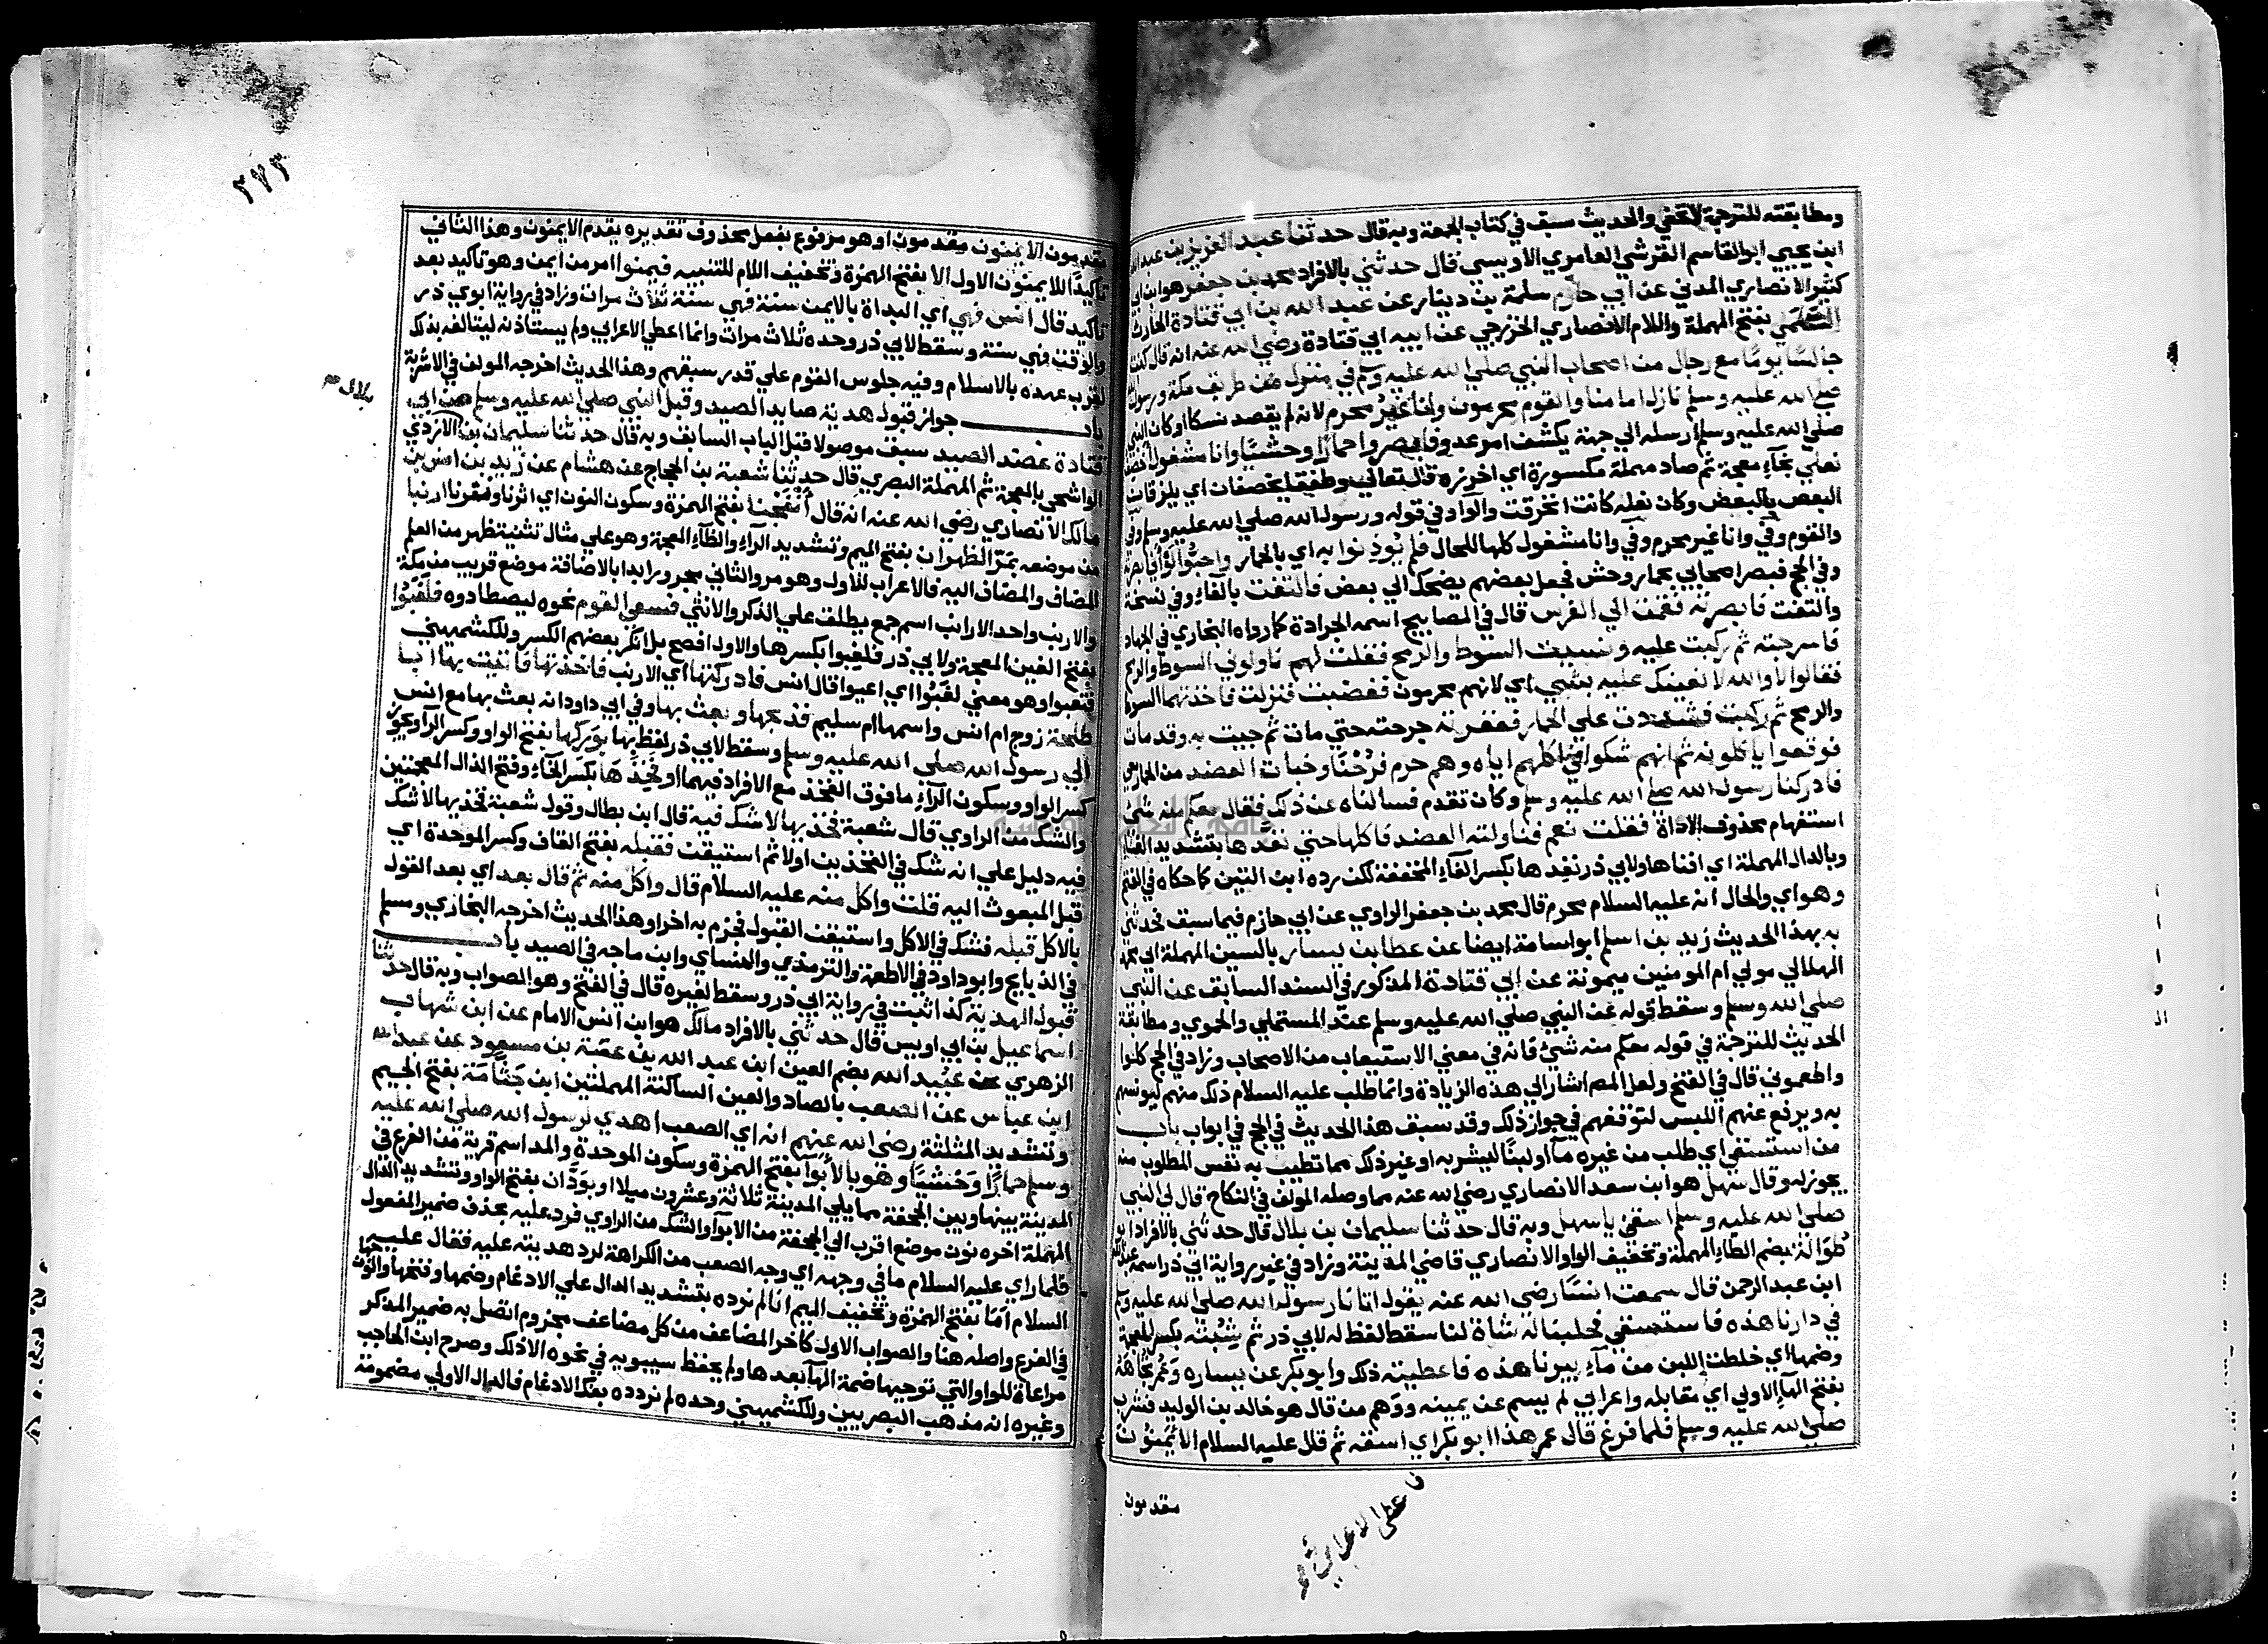 ومطابقته للترجمة لا تخفي والحديث سبق في كتاب الجمعة وبه قال حدثنا عبد العزيز بن عبد الله
ابن يحيي ابو القاسم القرشي العامري الاويسي قال حدثني بالافراد محمد بن جعفر هو ابن ابي
كثير الانصاري المدني عن ابي حازم سلمة بن دينار عن عبد الله بن ابي قتادة الحارث
السلمي بفتح المهملة واللام الانصاري الخزرجي عن ابيه ابي قتادة رضي الله عنه انه قال كنت
جالسًا يومًا مع رجال من اصحاب النبي صلي الله عليه وسلم في منزل من طريق مكة ورسول الله
صلي الله عليه وسلم نازل امامنا والقوم محرمون وانا غير محرم لانه لم يقصد نسكا او كان النبي
صلي الله عليه وسلم ارسله الي جهة يكشف امر عدو فابصروا حمارًا وحشيًا وانا مشغول اخصف
نعلي بخاء معجمة ثم صاد مهملة مكسورة اي اخرزه قال تعالي وطفقا يخصفان اي يلزقان
البعض بالبعض وكان نعله كانت انخرقت والواو في قوله ورسول الله صلي الله عليه وسلم وفي
والقوم وفي وانا غير محرم وفي وانا مشغول كلها للحال فلم يؤذنوا به اي بالحمار واحبوا لو اني ابصرته
وفي الحج فبصر اصحابي بحمار وحش فجعل بعضهم يضحك الي بعض فالتفت بالفاء وفي نسخة
والتفت فابصرته فقمت الي الفرس قال في المصابيح اسمه الجرادة كما رواه البخاري في الجهاد
فاسرجته ثم ركبت عليه ونسيت السوط والرمح فقلت لهم ناولوني السوط والرمح
فقالوا لا والله لا نعينك عليه بشيء اي لانهم محرمون فغضبت فنزلت فاخذتهما السوط
والرمح ثم ركبت فشددت علي الحمار فعقرته جرحته حتي مات ثم جيت به وقد مات
فوقعوا ياكلونه ثم انهم شكوا في اكلهم اياه وهم حرم فرحنا وخبات العضد من الحمار معي
فادركنا رسول الله صلي الله عليه وسلم وكان تقدم فسالناه عن ذلك فقال معكم منه شي
استفهام محذوف الاداة فقلت نعم فناولته العضد فاكلها حتي نفدها بتشديد الفاء
وبالدال المهملة اي افناها ولابي ذر نفدها بكسر الفاء المخففة لكن رده ابن التين كما حكاه في الفتح
وهو اي والحال انه عليه السلام محرم قال محمد بن جعفر الراوي عن ابي حازم فيما سبق فحدثني
به بهذا الحديث زيد بن اسلم ابو اسامة ايضا عن عطا بن يسار بالسين المهملة
الهلالي مولي ام المومنين ميمونة عن ابي قتادة المذكور في السند السابق عن النبي
صلي الله وسلم وسقط قوله عن النبي صلي الله عليه وسلم عند المستملي والحموي ومطابقة
الحديث للترجمة في قوله معكم منه شئ فانه في معني الاستيهاب من الاصحاب وزاد في الحج كلوا
واطعموني قال في الفتح ولعل المص اشار الي هذه الزيادة وانما طلب عليه السلام ذلك منهم ليونسهم
به ويرفع عنهم اللبس لتوقفهم في جواز ذلك وقد سبق هذا الحديث في الحج في ابواب باب
من استسقي اي طلب من غيره ماء او لبنًا ليشربه او غير ذلك مما تطيب به نفس المطلوب منه
يجوز له وقال سهل هو ابن سعد الانصاري رضي الله عنه مما وصله المولف في النكاح قال لي النبي
صلي الله عليه وسلم اسقني يا سهل وبه قال حدثنا سليمان بن بلال قال حدثني بالافراد ابو
طوالة بضم الطاء المهملة وتخفيف الواو الانصاري قاضي المدينة وزاد في غير رواية ابي ذر اسمه عبد الله
ابن عبد الرحمن قال سمعت انسًا رضي الله عنه يقول اتانا رسول الله صلي الله عليه وسلم
في دارنا هذه فاستسقي فحلبنا له شاة لنا سقط لفظ له لابي ذر ثم شبته بكسر المعجمة
وضمها اي خلطت اللبن من ماء بيرنا هذه فاعطيته ذلك وابو بكر عن يساره وعمر تجاهه
بفتح الهاء الاولي اي مقابله واعرابي لم يسم عن يمينه ووهم من قال هو خالد بن الوليد فشرب
صلي الله عليه وسلم فلما فرغ قال عمر هذا ابو بكر اي اسقه ثم قال عليه السلام الايمنون
مقدمون
٢٧٣
مقدمون الايمنون مقدمون او هو مرفوع بفعل محذوف تقديره يقدم الايمنون وهذا الثاني
تاكيدًا للايمنون الاول الا بفتح الهمزة وتخفيف اللام للتنبيه فيمنوا امر من ايمن وهو تاكيد بعد
تاكيد قال انس فهي اي البداة بالايمن سنة فهي سنة ثلاث مرات وزاد في رواية ابوي ذر
والوقت فهي سنة وسقط لابي ذر وحده ثلاث مرات وانما اعطي الاعرابي ولم يستاذنه ليتالفه بذلك
لقرب عهده بالاسلام وفيه جلوس القوم علي قدر سبقهم وهذا الحديث اخرجه المولف في الاشربة
باب جواز قبول هدية صايد الصيد وقبل النبي صلي الله عليه وسلم من ابي
قتادة عضد الصيد سبق موصولا قبل الباب السابق وبه قال حدثنا سليمان بن الازدي
الواشحي بالمعجمة ثم المهملة البصري قال حدثنا شعبة بن الحجاج عن هشام عن زيد بن انس بن
مالك الانصاري رضي الله عنه انه قال انفجنا بفتح الهمزة وسكون النون اي اثرنا ونفرنا ارنبا
من موضعه بمر الظهران بفتح الميم وتشديد الراء والظاء المعجمة وهو علي مثال تثنية ظهر من العلم
المضاف والمضاف اليه فالاعراب للاول وهو مر والثاني مجرور ابدا بالاضافة موضع قريب من مكة
والارنب واحد الارانب اسم جمع يطلق علي الذكر والانثي فسعي القوم نحوه ليصطادوه فلغبوا
بفتح الغين المعجمة ولابي ذر فلغبوا بكسرها والاول افصح بل انكر بعضهم الكسر وللكشميهني
فتعبوا وهو معني لغبوا اي اعيوا قال انس فادركتها اي الارنب فاخذتها فاتيت بها ابا
طلحة زوج ام انس واسمها ام سليم فذبحها وبعث بها وفي ابي داود انه بعث بها مع انس
الي رسول الله صلي الله عليه وسلم وسقط لابي ذر لفظ بها بوركها بفتح الواو وكسر الراء ويجوز
كسر الواو وسكون الراء ما فوق الفخذ مع الافراد فيهما او فخذها بكسر الخاء وفتح الذال المعجمتين
والشك من الراوي قال شعبة فخذيها لا شك فيه قال ابن بطال وقول شعبة فخذيها لا شك
فيه دليل علي انه شك في الفخذين اولا ثم استيقن فقبله بفتح القاف وكسر الموحدة اي
قبل المبعوث اليه قلت واكل منه عليه السلام قال واكل منه ثم قال بعد اي بعد القول
بالاكل قبله فشك في الاكل واستيقن القبول فجزم به اخرا وهذا الحديث اخرجه البخاري ومسلم
في الذبايح وابو داود في الاطعمة والترمذي والنساي وابن ماجه في الصيد باب
قبول الهدية كذا ثبت في رواية ابي ذر وسقط لغيره قال في الفتح وهو الصواب وبه قال حدثنا
اسماعيل بن ابي اويس قال حدثني بالافراد مالك هو ابن انس الامام عن ابن شهاب
الزهري عن عبيد الله بضم العين ابن عبد الله بن عتبة بن مسعود عن عبد الله
ابن عباس عن الصعب بالصاد والعين الساكنة المهملتين ابن جثامة بفتح الجيم
وتشديد المثلثة رضي الله عنهم انه اي الصعب اهدي لرسول الله صلي الله عليه
وسلم حمارًا وحشيًا وهو بالابوآ بفتح الهمزة وسكون الموحدة والمد اسم قرية من الفرع في
المدينة بينها وبين الجحفة مما يلي المدينة ثلاثة وعشرون ميلا او بودان بفتح الواو وتشديد الدال
المهملة اخره نون موضع اقرب الي الجحفة من الابوآ والشك من الراوي فرد عليه بحذف ضمير المفعول
فلما راي عليه السلام ما في وجهه اي وجه الصعب من الكراهة لرد هديته عليه فقال عليه
السلام اما بفتح الهمزة وتخفيف الميم انا لم نرده بتشديد الدال علي الادغام وضمها وفتحها والثاني
في الفرع واصله هنا والصواب الاول كاخر المضاعف من كل مضاعف مجزوم اتصل به ضمير المذكر
مراعاة للواو التي توجبها ضمة الهاء بعدها ولم يحفظ سيبويه في نحوه الا ذلك وصرح ابن الحاجب
وغيره انه مذهب البصريين وللكشميهني وحده لم نردده بفك الادغام فالدال الاولي مضمومة